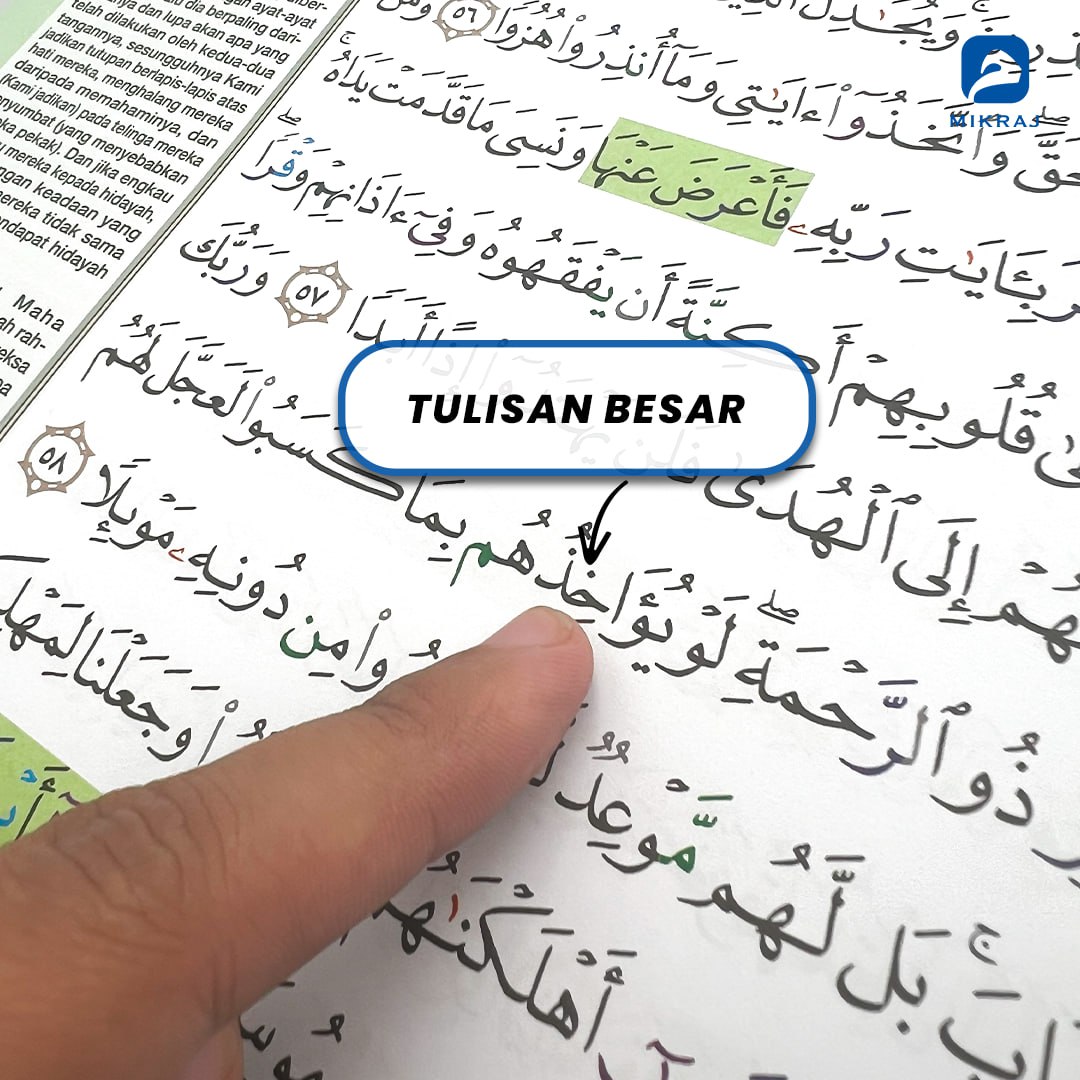 MIKRAJ
TULISAN BESAR
gan ayat-ayat
dia berpaling dari-
nya dan lupa akan apa yang
telah dilakukan oleh kedua-dua
tangannya, sesungguhnya Kami
jadikan tutupan berlapis-lapis atas
hati mereka, menghalang mereka
daripada memahaminya, dan
(Kami jadikan) pada telinga mereka
nyumbat (yang menyebabkan
ka pekak). Dan jika engkau
u mereka kepada hidayah,
ngan keadaan yang
ereka tidak sama
ndapat hidayah
Maha
ah rah-
eksa
وَيُجَـٰدِلُ
حَقَّ ۖ وَٱتَّخَذُوٓا۟ ءَايَـٰتِى وَمَآ أُنذِرُوا۟ هُزُوًا ٥٦ وَمَنْ
رَ بِـَٔايَـٰتِ رَبِّهِۦ فَأَعْرَضَ عَنْهَا وَنَسِىَ مَا قَدَّمَتْ يَدَاهُ ۚ
قُلُوبِهِمْ أَكِنَّةً أَن يَفْقَهُوهُ وَفِىٓ ءَاذَانِهِمْ وَقْرًا ۖ
هُمْ إِلَى ٱلْهُدَىٰ فَلَن يَهْتَدُوٓا۟ إِذًا أَبَدًا ٥٧ وَرَبُّكَ
ذُو ٱلرَّحْمَةِ ۖ لَوْ يُؤَاخِذُهُم بِمَا كَسَبُوا۟ لَعَجَّلَ لَهُمُ
ابَ ۚ بَل لَّهُم مَّوْعِدٌ وا۟ مِن دُونِهِۦ مَوْئِلًا ٥٨
أَهْلَكْنَـٰهُمْ وَجَعَلْنَا لِمَهْلِكِ